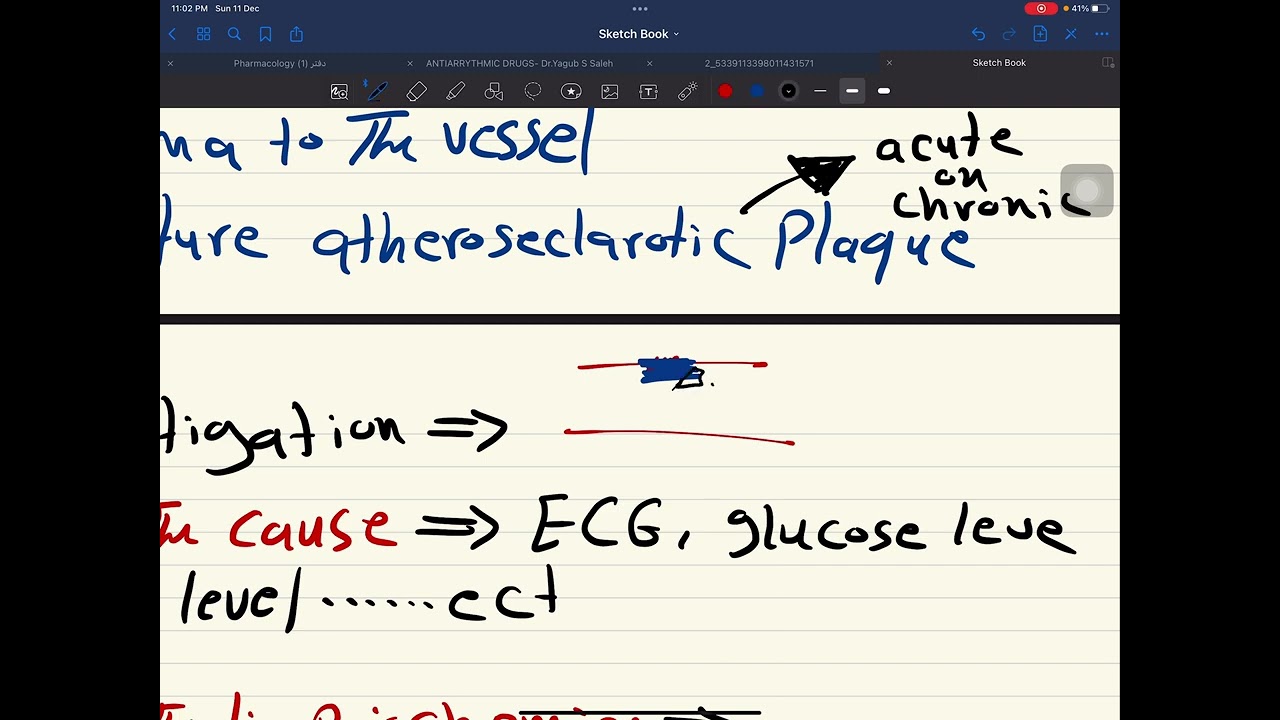 11:02 PM Sun 11 Dec
41%
Sketch Book
دفتر Pharmacology (1)
ANTIARRYTHMIC DRUGS- Dr.Yagub S Saleh
2_5339113398011431571
Sketch Book
ma to The vessel
acute
on
chronic
ture atheroseclarotic Plaque
tigation =>
The cause => ECG, glucose leve
level ...... ect